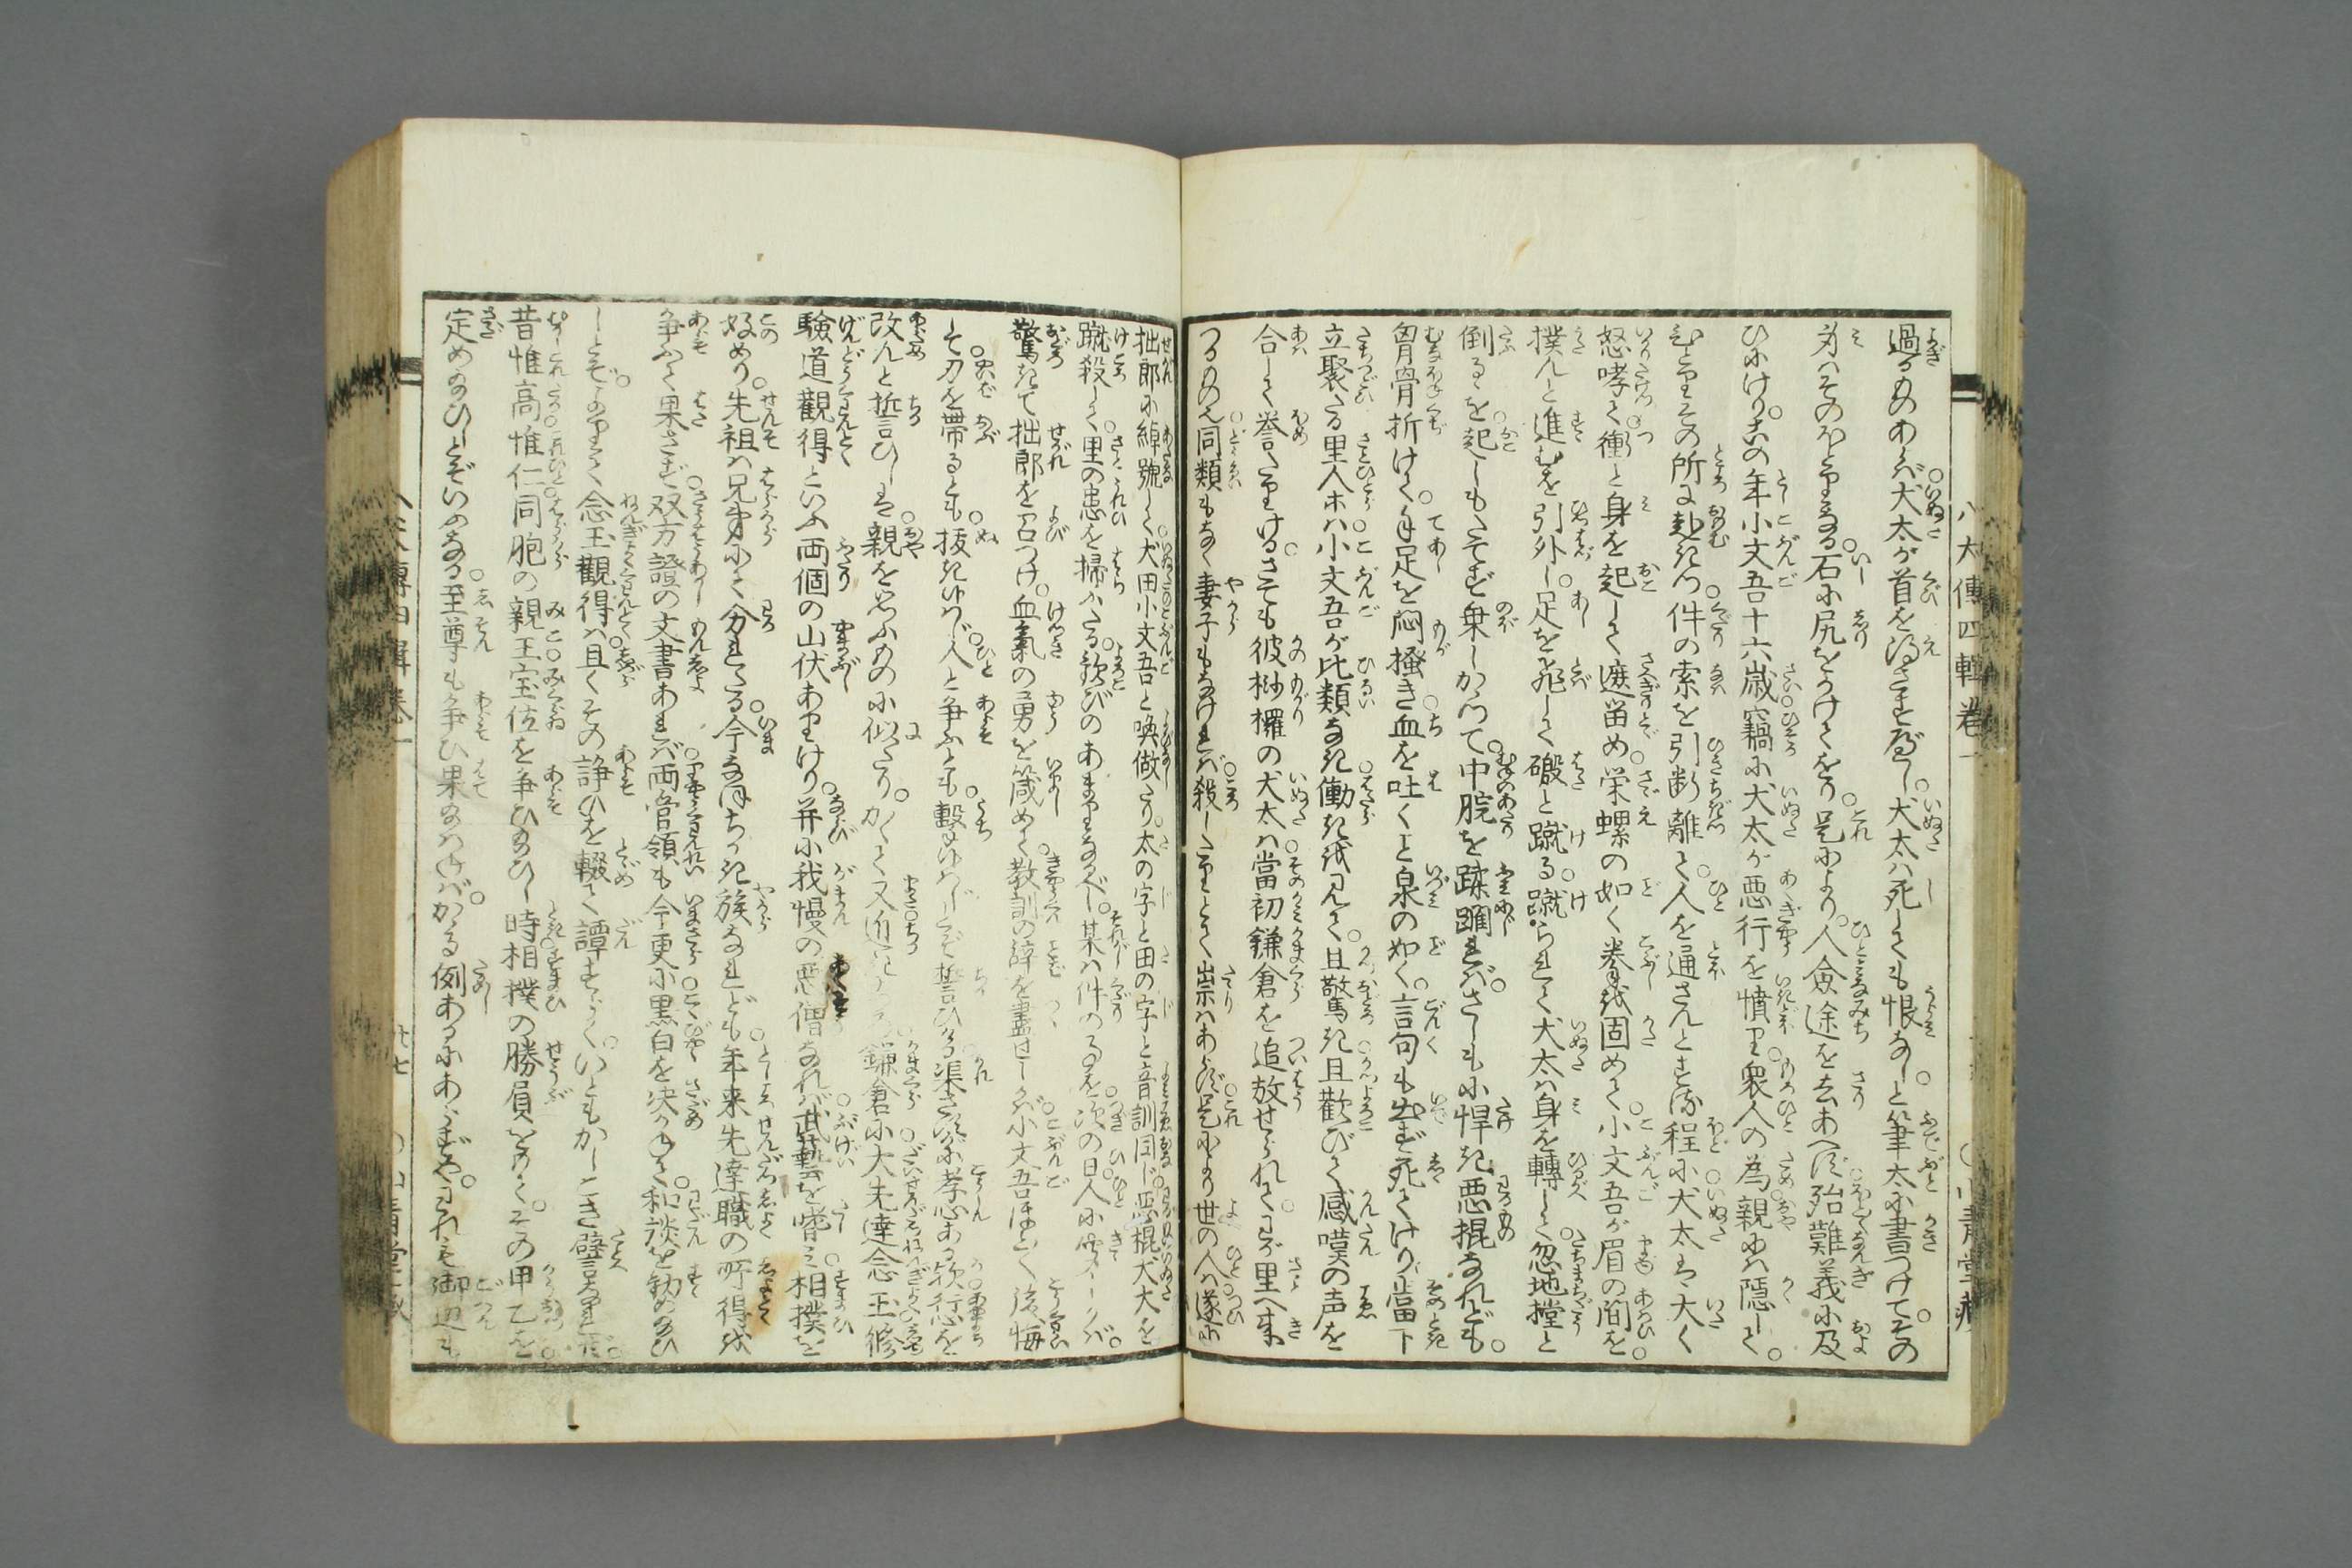 八犬傳四輯卷一
過るものあらば犬太が首を得させべし犬太は死しても恨なしと筆太に書つけてその
身はそのほとりなる石に尻をうけてをり是により人僉途を去あへず殆難義に及
ひにけりこの年小文吾十六歳竊に犬太が悪行を憤り衆人の為親には隠して
ひとりその所に赴きつ件の索を引断離て人を通さんとする程に犬太はいたく
怒哮て衝と身を起して遮留め栄螺の如く拳を固めて小文吾が眉の間を
撲んと進むを引外し足を飛して礑と蹴る蹴られて犬太は身を轉して忽地撞と
倒るるを起しもたてず乗しかかって中脘を踩躪ればさしもに悍き悪棍なれども
胷骨折けて手足を悶掻き血を吐くこと泉の如く言句も出ず死てけり當下
立聚たる里人ホは小文吾が比類なき働きを見て且驚き且歡びて感嘆の声を
合して誉たりけるさても彼栁欏の犬太は當初鎌倉を追放せられてわが里へ来
つるもの也同類もなく妻子もなければ殺したりとて祟はあらず是よりの世の人は遂に
拙郎に綽號して犬田小文吾と喚做たり太の字と田の字と音訓同じ悪棍犬太を
蹴殺して里の患を掃ひたる歡びのあまりなるべし某は件の事を次の日人に聞しかば
驚きて拙郎を召つけ血氣の勇を箴めて教訓の辞を盡せしかば小文吾はふかく後悔
して刀を帶るとも抜きゆはず人と争ふとも撃ゆはじとぞ誓ひける渠さすがに孝心ある欤行を
改んと誓言ひしは親を思ふものに似たりかくて又近きころ鎌倉に大先達念玉修
驗道觀得といふ両個の山伏ありけり并に我慢の悪僧なれば武藝を嗜み相撲を
好めり先祖は兄弟にて分れたる今なほちかき族なれども年来先達職の所得を
争ふて果さず双方證の文書あれば両管領も今更に黒白を決めかねて和談を勧め給ひ
しとぞ念玉觀得は且くその諍ひを輟て譚ずらくいともかしこき譬なれど
昔惟高惟仁同胞の親王宝位を争ひ給ひし時相撲の勝負をもてその甲乙を
定め給ひしとぞいふなる至尊も争ひ果給はねばかかる例あるにあらずやわれも御邊も